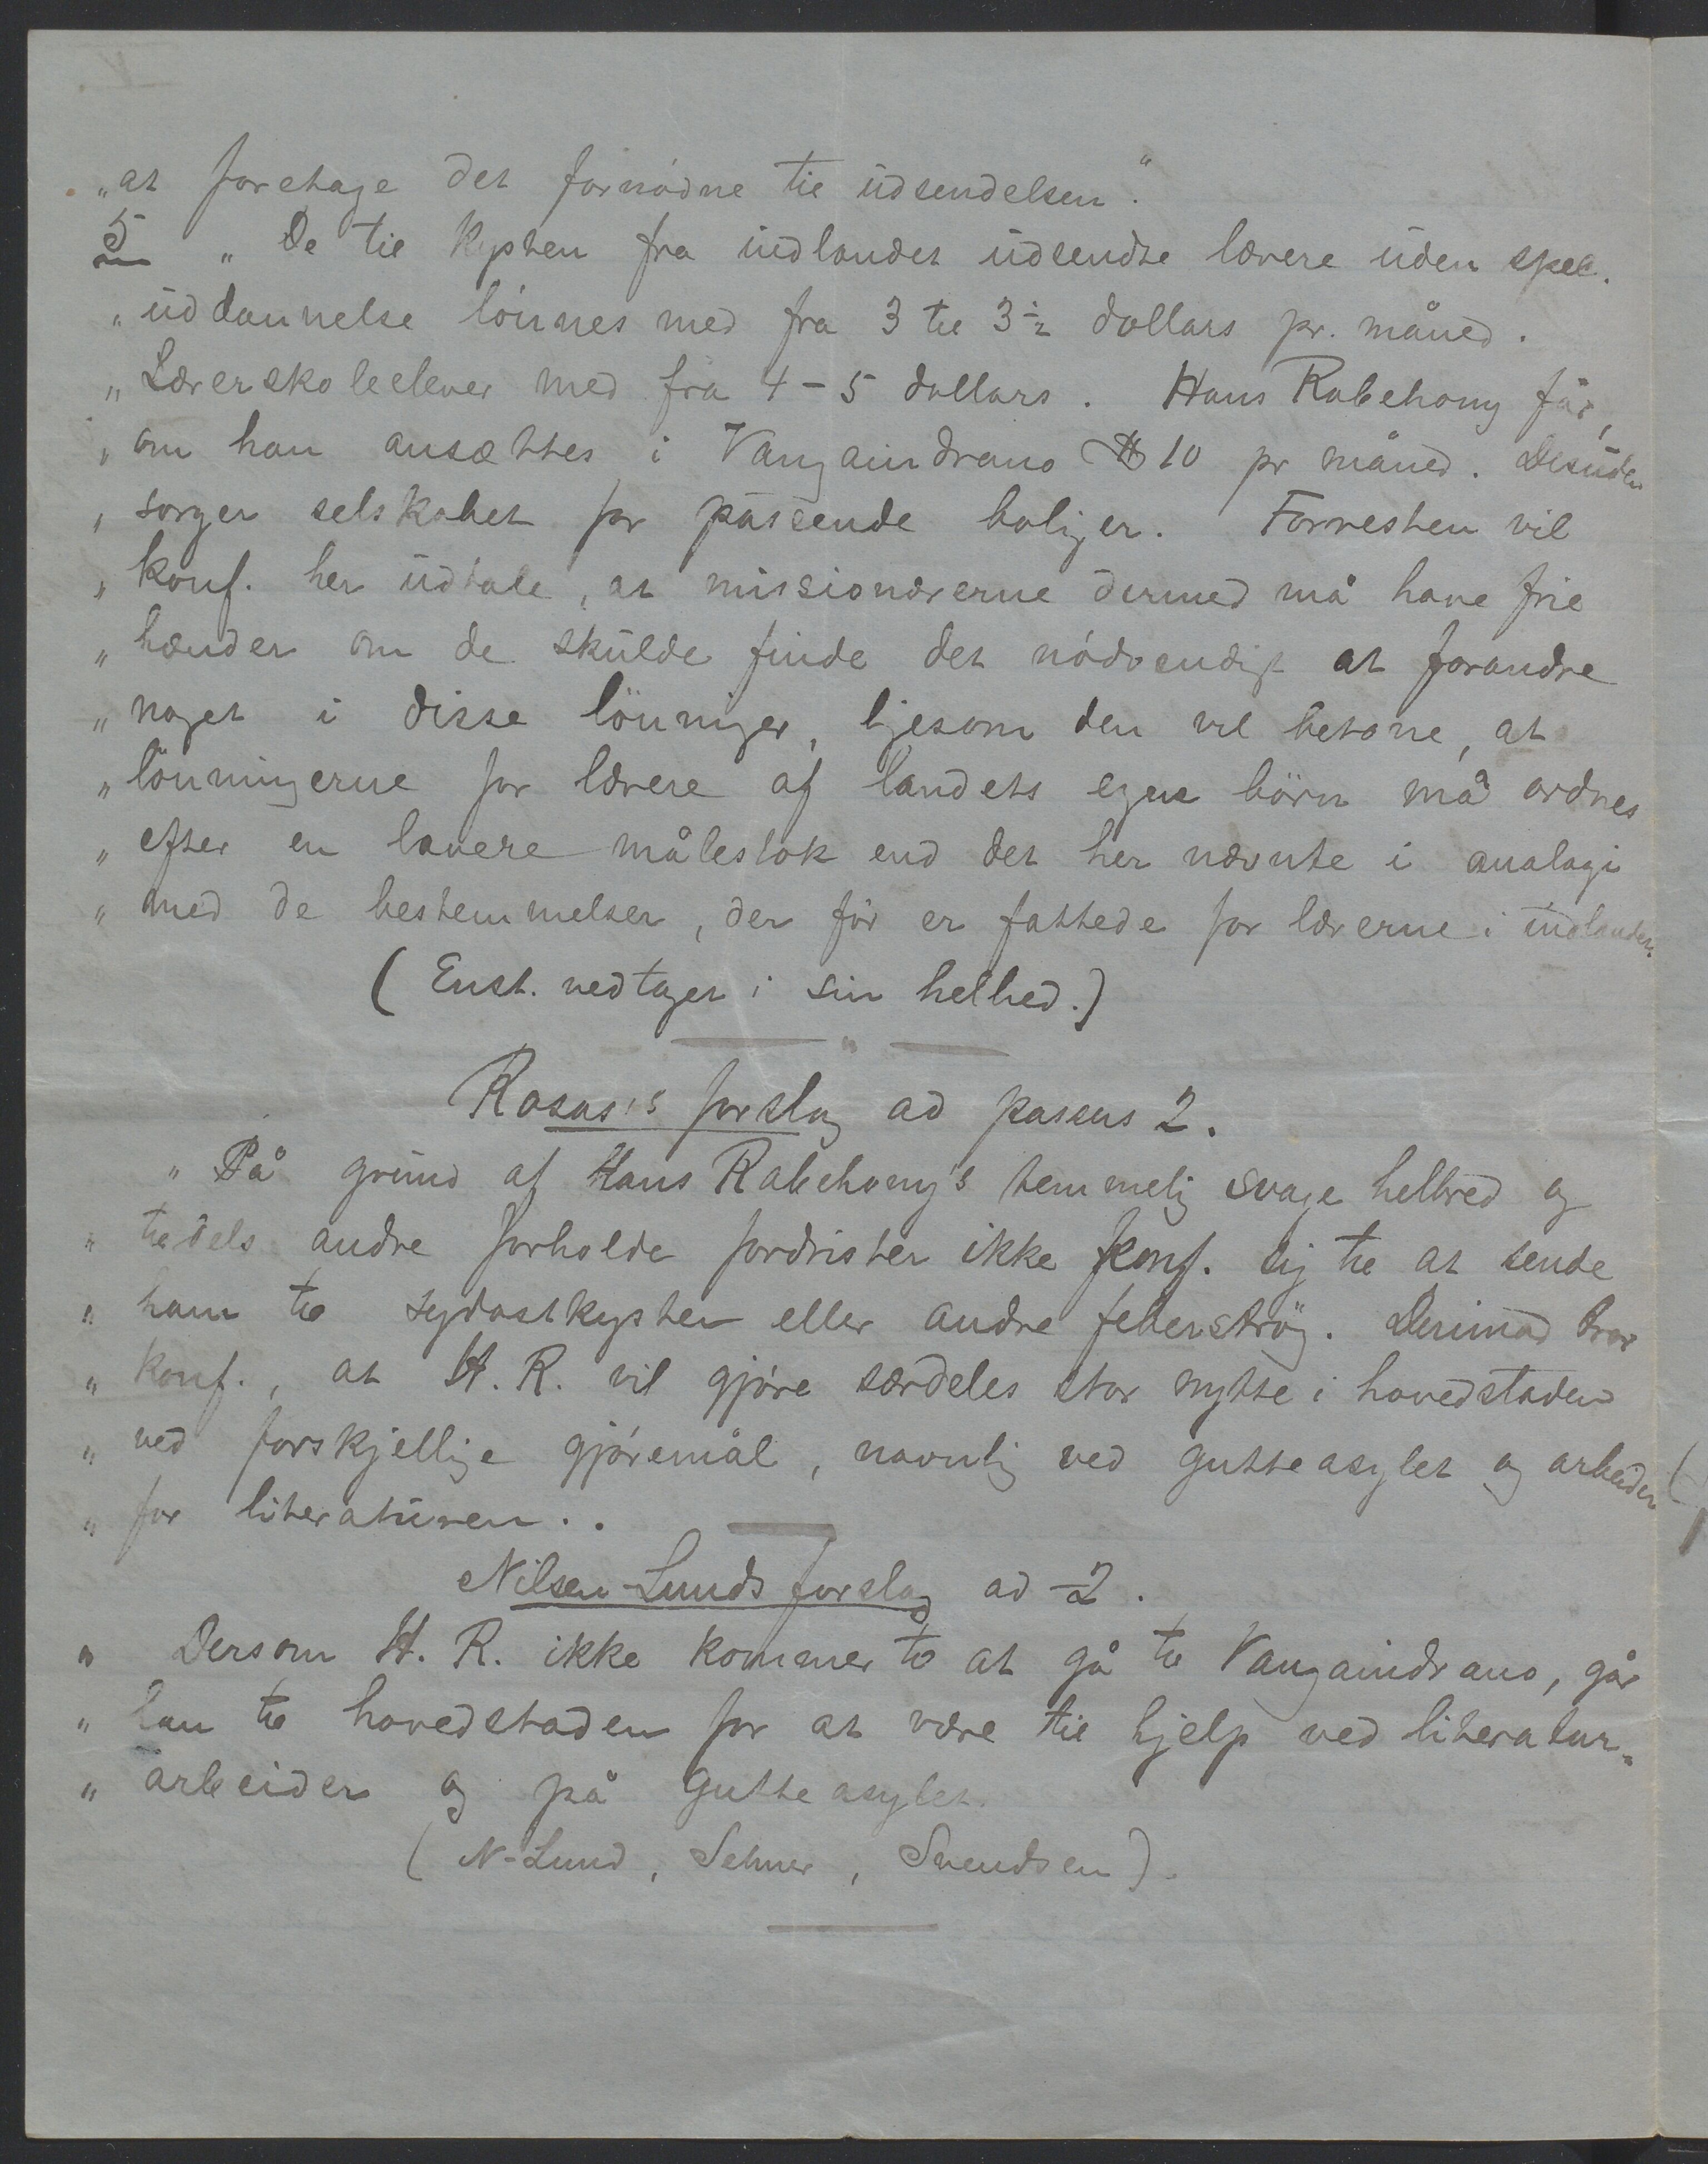 „at foretage det fornødne til udsendelsen."
5 „De til Kysten fra indlandet udsendte lærere uden spec.
„uddannelse lönnes med fra 3 til 3½ dollars pr. måned.
„Lærerskoleelever med fra 4-5 dollars. Hans Rabehony får,
„om han ansættes i Vangaindrano $ 10 pr måned. Desuden
„sørger selskabet for passende boliger. Forresten vil
„konf. her udtale, at missionærerne dermed må have frie
„hænder om de skulde finde det nödvendigt at forandre
„noget i disse lönninger, ligesom den vil betone, at
„lönningerne for lærere af landets egne börn må ordnes
„efter en lavere målestok end det her nævnte i analogi
„med de bestemmelser, der för er fattede for lærerne i indlandet.
(Enst. vedtaget i sin helhed.)
Rosaas's forslag ad passus 2.
„På grund af Hans Rabehony's temmelig svage helbred og
„tildels andre forholde fordrister ikke konf. sig til at sende
„ham til sydostkysten eller andre feberströg. Derimod tror
„konf., at H. R. vil gjöre særdeles stor nytte i hovedstaden
„ved forskjellige gjöremål, navnlig ved gutteasylet og arbeider
„for literaturen..
Nilsen-Lunds forslag ad 2.
„Dersom H. R. ikke kommer til at gå til Vangaindrano, går
„han til hovedstaden for at være til hjelp ved literatur„
„arbeider og på gutteasylet.
(N-Lund, Selmer, Svendsen).